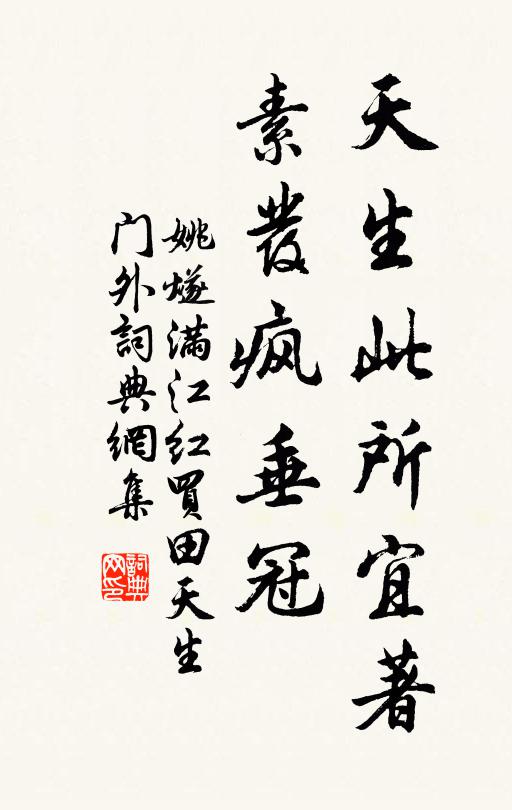 天生此所宜著
素發瘋垂冠
姚燧满江红買田天生
门外詞典網集
詞典网印